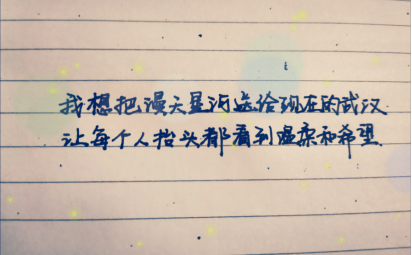 我想把漫天星河送给现在的武汉
让每个人抬头都看到温柔和希望.